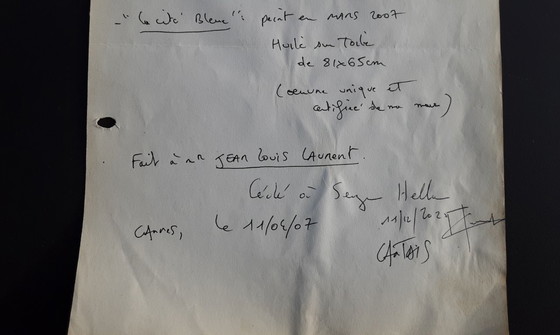 - "La cité Bleue": peint en MARS 2007
Huile sur Toile
de 81x65cm
(oeuvre unique et
certifiée de ma main)
Fait à Mr JEAN LOUIS LAURENT.
Cédé à Serge
CANNES, le 11/04/07